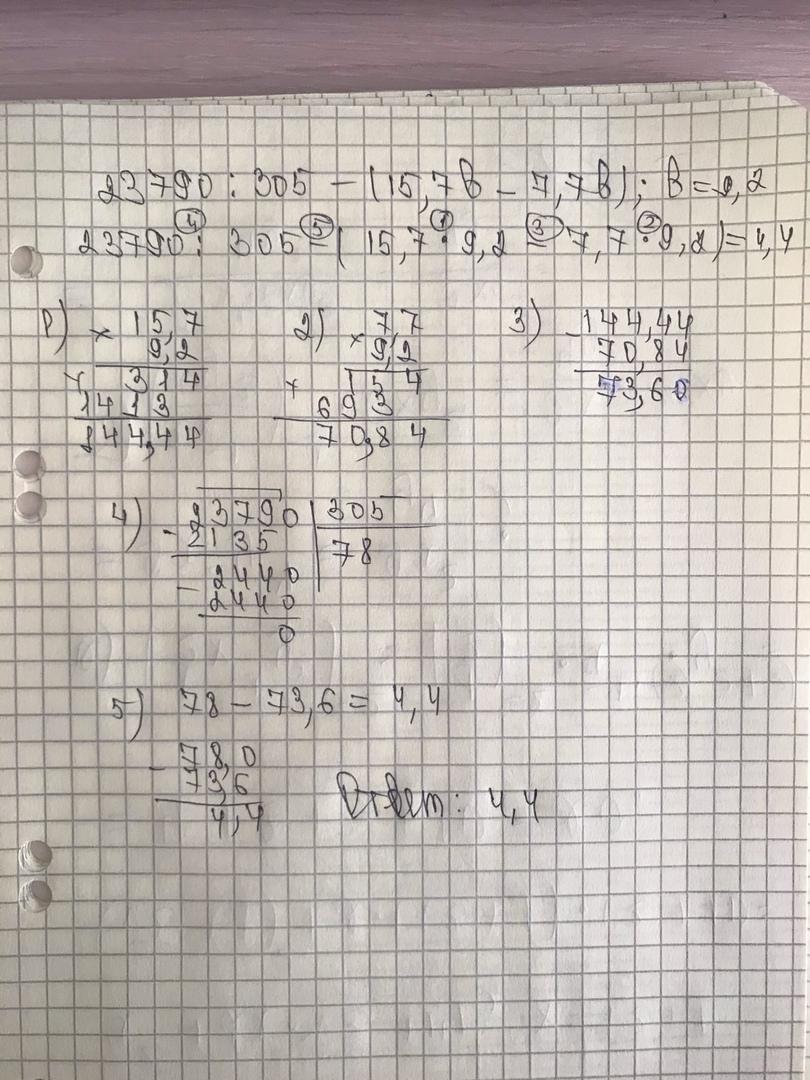 23790 : 305 – (15,7в – 7,7в); в = 9,2
23790 : 305 – ( 15,7 · 9,2 – 7,7 · 9,2) = 4,4
4 5 1 3 2
1) × 15,7
9,2
+ 314
1413
144,44
2) × 7,7
9,2
+ 154
693
70,84
3) – 144,44
70,84
73,60
4) – 23790 | 305
2135 | 78
– 2440
2440
0
5) 78 – 73,6 = 4,4
– 78,0
73,6
4,4
Ответ: 4,4